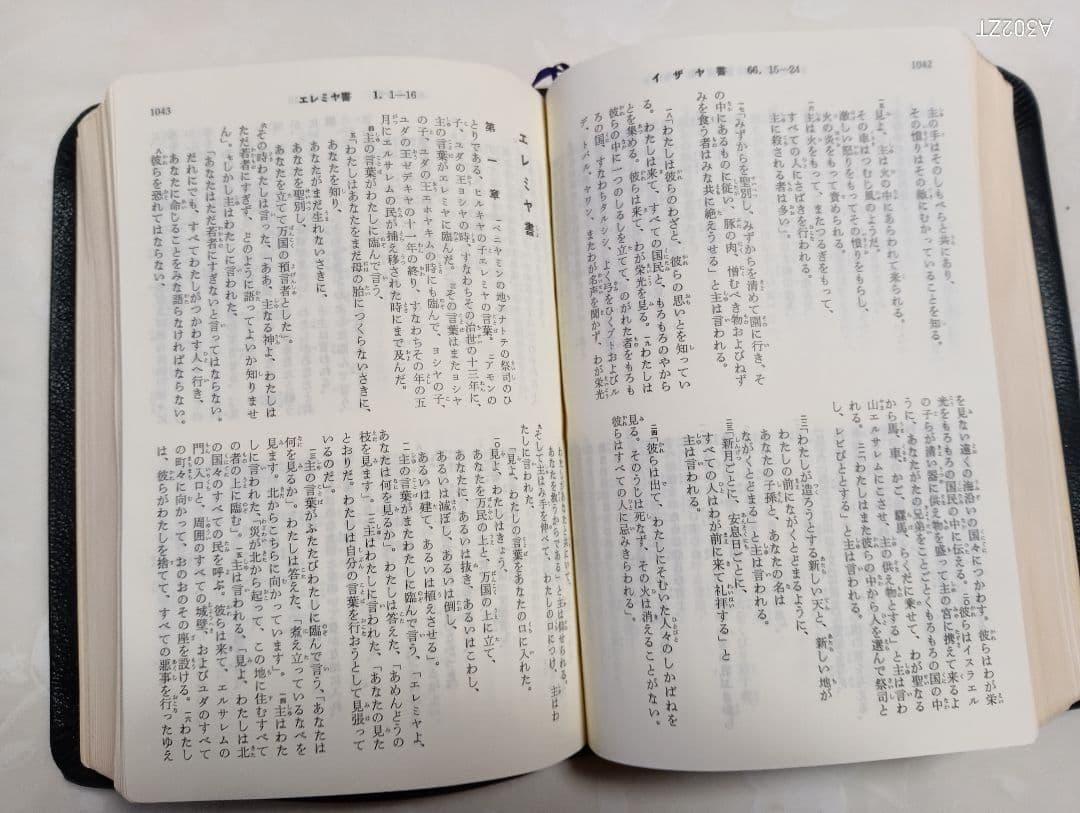 A302ZT
イザヤ書 66. 15—24
1042
主の手はそのしもべらと共にあり、
その憤りはその敵にむかっていることを知る。
一五見よ、主は火の中にあらわれて来られる。
その車はつむじ風のようだ。
激しい怒りをもってその憤りをもらし、
火の炎をもって責められる。
一六主は火をもって、またつるぎをもって、
すべての人にさばきを行われる。
主に殺される者は多い」。
一七「みずからを聖別し、みずからを清めて園に行き、そ
の中にあるものに従い、豚の肉、憎むべき物およびねず
みを食う者はみな共に絶えうせる」と主は言われる。
一八「わたしは彼らのわざと、彼らの思いとを知ってい
る。わたしは来て、すべての国民と、もろもろのやから
とを集める。彼らは来て、わが栄光を見る。一九わたしは
彼らの中に一つのしるしを立てて、のがれた者をもろも
ろの国、すなわちタルシシ、よく弓をひくプトおよびル
デ、トバル、ヤワン、またわが名声を聞かず、わが栄光
を見ない遠くの海沿いの国々につかわす。彼らはわが栄
光をもろもろの国民の中に伝える。二〇彼らはイスラエル
の子らが清い器に供え物を盛って主の宮に携えて来るよ
うに、あなたがたの兄弟をことごとくもろもろの国の中
から馬、車、かご、騾馬、らくだに乗せて、わが聖なる
山エルサレムにこさせ、主の供え物とする」と主は言わ
れる。二一「わたしはまた彼らの中から人を選んで祭司と
し、レビびととする」と主は言われる。
二二「わたしが造ろうとする新しい天と、新しい地が
わたしの前にながくとどまるように、
あなたの子孫と、あなたの名は
ながくとどまる」と主は言われる。
二三「新月ごとに、安息日ごとに、
すべての人はわが前に来て礼拝する」と
主は言われる。
二四「彼らは出て、わたしにそむいた人々のしかばねを
見る。そのうじは死なず、その火は消えることがない。
彼らはすべての人に忌みきらわれる」。
エレミヤ書 1. 1—16
1043
エレミヤ書
第一章
一ベニヤミンの地アナトテの祭司のひ
とりである、ヒルキヤの子エレミヤの言葉。二アモンの
子、ユダの王ヨシヤの時、すなわちその治世の十三年に、
主の言葉がエレミヤに臨んだ。三その言葉はまたヨシヤ
の子、ユダの王エホヤキムの時にも臨んで、ヨシヤの子、
ユダの王ゼデキヤの十一年の終り、すなわちその年の五
月にエルサレムの民が捕え移された時にまで及んだ。
四主の言葉がわたしに臨んで言う、
五「わたしはあなたをまだ母の胎につくらないさきに、
あなたを知り、
あなたがまだ生れないさきに、
あなたを聖別し、
あなたを立てて万国の預言者とした」。
六その時わたしは言った、「ああ、主なる神よ、わたしは
ただ若者にすぎず、どのように語ってよいか知りませ
ん」。七しかし主はわたしに言われた、
「あなたはただ若者にすぎないと言ってはならない。
だれにでも、すべてわたしがつかわす人へ行き、
あなたに命じることをみな語らなければならない。
八彼らを恐れてはならない、
わたしがあなたと共にいて、
あなたを救うからである」と主は仰せられる。
九そして主はみ手を伸べて、わたしの口につけ、主はわ
たしに言われた、
「見よ、わたしの言葉をあなたの口に入れた。
一〇見よ、わたしはきょう、
あなたを万民の上と、万国の上に立て、
あなたに、あるいは抜き、あるいはこわし、
あるいは滅ぼし、あるいは倒し、
あるいは建て、あるいは植えさせる」。
一一主の言葉がまたわたしに臨んで言う、「エレミヤよ、
あなたは何を見るか」。わたしは答えた、「あめんどうの
枝を見ます」。一二主はわたしに言われた、「あなたの見た
とおりだ。わたしは自分の言葉を行おうとして見張って
いるのだ」。
一三主の言葉がふたたびわたしに臨んで言う、「あなたは
何を見るか」。わたしは答えた、「煮え立っているなべを
見ます。北からこちらに向かっています」。一四主はわた
しに言われた、「災が北から起って、この地に住むすべて
の者の上に臨む」。一五主は言われる、「見よ、わたしは北
の国々のすべての民を呼ぶ。彼らは来て、エルサレムの
門の入口と、周囲のすべての城壁、およびユダのすべて
の町々に向かって、おのおのその座を設ける。一六わたし
は、彼らがわたしを捨てて、すべての悪事を行ったゆえ